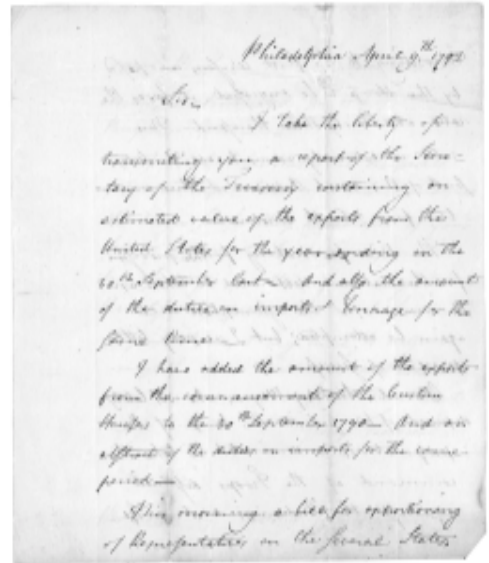 Philadelphia April 9th 1792
Sir,
I take the liberty of
transmiting you a report of the Secre-
tary of the Treasury containing an
estimated value of the exports from the
United States for the year ending on the
30th September last - And also the amount
of the duties on imports & tonnage for the
same time
I have added the amount of the exports
from the commencement of the Custom
Houses to the 30th September 1790 - And an
abstract of the duties on imports for the same
period -
This morning a bill for apportioning
of Representatives on the several States